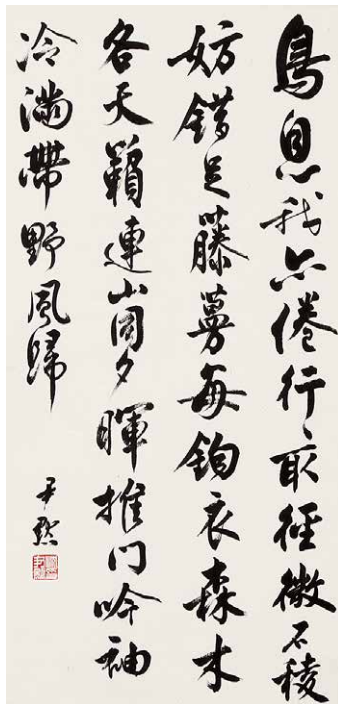 鳥息我亦倦行〻取徑微石稜
妨錯足藤蔓每鈎衣森木
各天籟連山同夕暉推門吟袖
冷滿帶野風歸
尹默